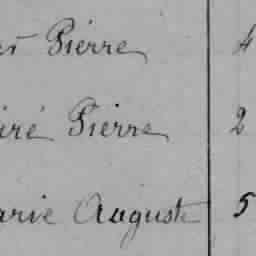 Pierre 4
iré Pierre 2
arie Auguste 5